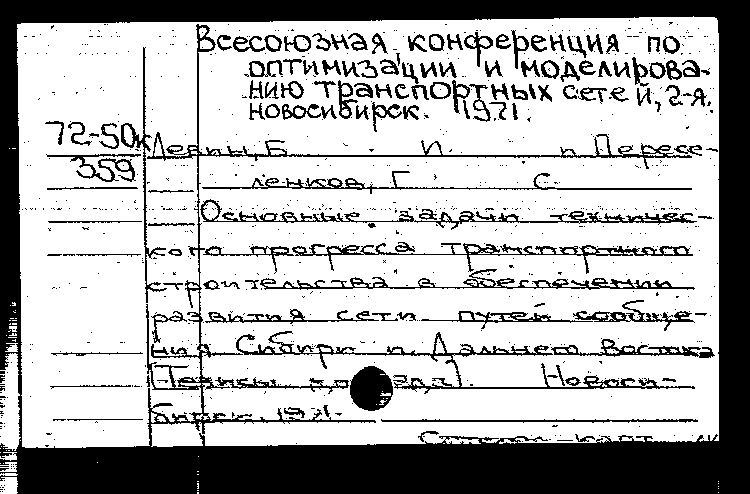 Всесоюзная конференция по
оптимизации и моделирова-
нию транспортных сетей, 2-я.
Новосибирск. 1971.
72-50к Левин, Б. И. и Пересе-
359 ленков, Г. С.
Основные задачи техничес-
кого прогресса транспортного
строительства в обеспечении
развития сети путей сообще-
ния Сибири и Дальнего Востока
[Тезисы докл]. Новоси-
бирск. 1971.